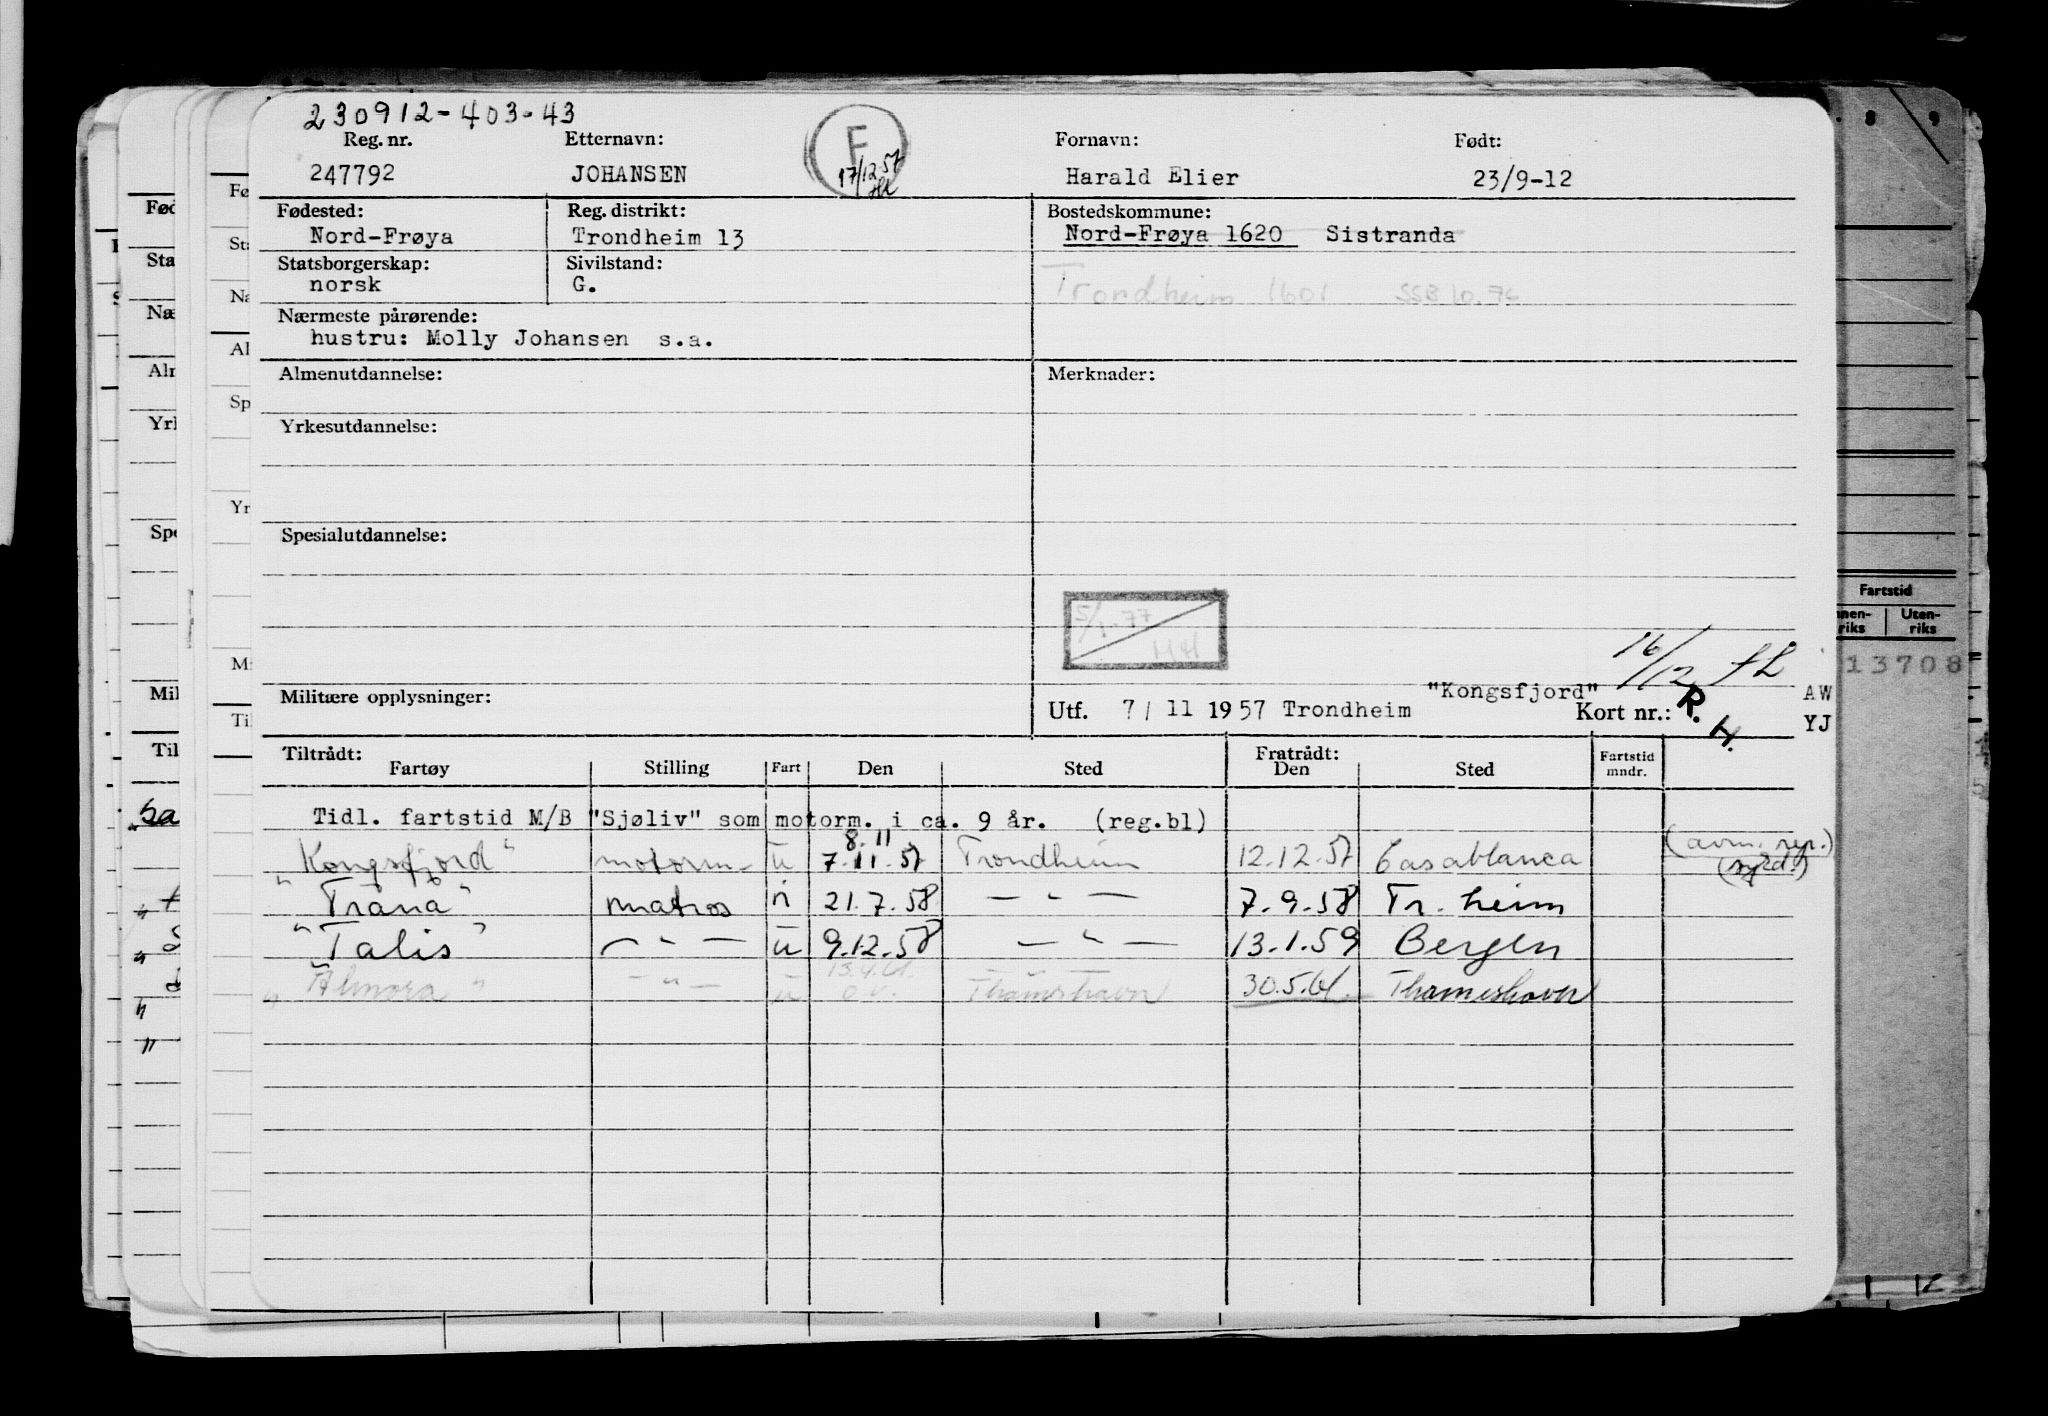 230912-403-43
Reg. nr. Etternavn: Fornavn: Født:
247792 JOHANSEN F Harald Elier 23/9-12
17/12 57
Fødested: Reg. distrikt: Bostedskommune:
Nord-Frøya Trondheim 13 Nord-Frøya 1620 Sistranda
Statsborgerskap: Sivilstand:
norsk G. Trondheim 1601 SSB 10.76
Nærmeste pårørende:
hustru: Molly Johansen s.a.
Almenutdannelse: Merknader:
Yrkesutdannelse:
Spesialutdannelse:
5/1-77
16/12
Militære opplysninger: "Kongsfjord" AW
Utf. 7/11 1957 Trondheim Kort nr.: R. H. YJ
Tiltrådt: Fratrådt: Fartstid
Fartøy Stilling Fart Den Sted Den Sted mndr.
Tidl. fartstid M/B "Sjøliv" som motorm. i ca. 9 år. (reg.bl)
8.11
"Kongsfjord" motorm. u 7.11.57 Trondheim 12.12.57 Casablanca (avm. rep.)
"Tråna" matros n 21.7.58 — " — 7.9.58 Tr.heim
"Talis" — " — u 9.12.58 — " — 13.1.59 Bergen
13.4.61
"Almora" — " — u o.v. Thamshavn 30.5.61 Thamshavn
Fartstid
Uten-
riks riks
13708
8 9